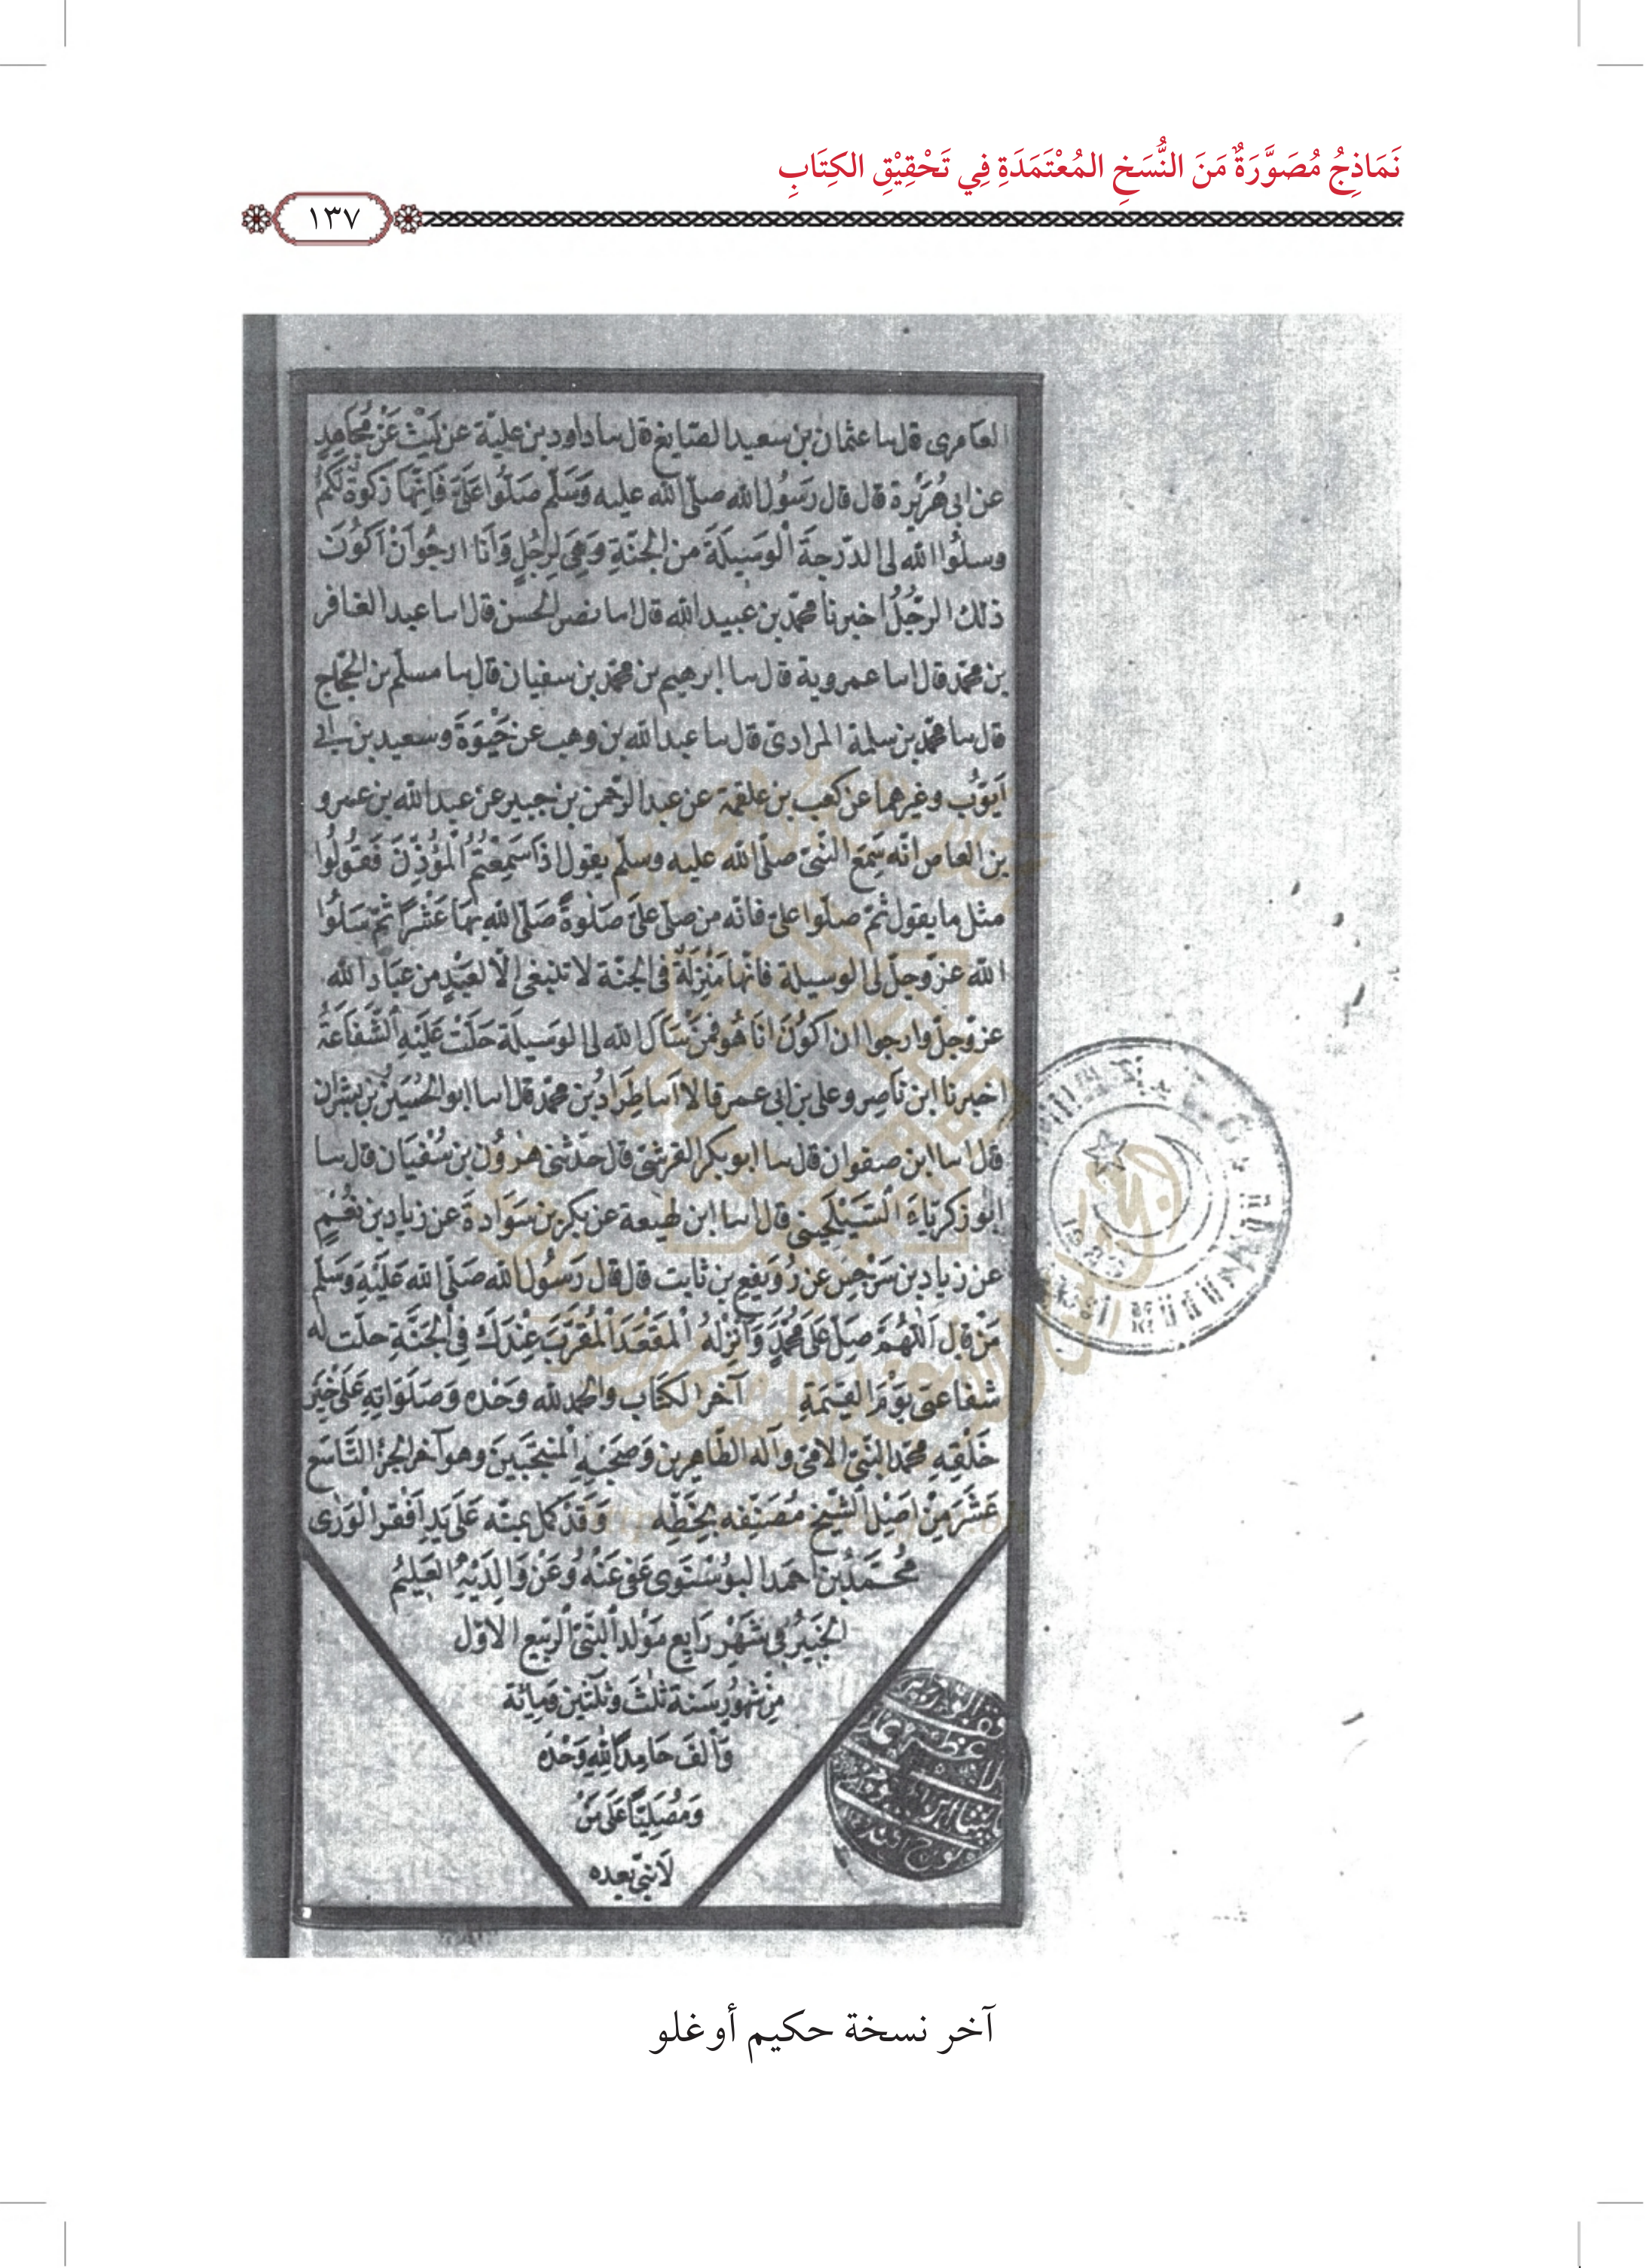 نَمَاذِجُ مُصَوَّرَةٌ مَنَ النُّسَخِ المُعْتَمَدَةِ فِي تَحْقِيْقِ الكِتَابِ
١٣٧
العامرى قال سا عثمان بن سعيد الصايغ قال سا داود بن علية عن لَيْث عَنْ مُجاهِدٍ
عن ابى هُرَيْرة قال قال رَسُولُ الله صلّى الله عليه وَسَلّم صَلّوا عَلَىَّ فَاِنَّها زكوةٌ لَكُمْ
وسلُوا الله لى الدّرجةَ الْوَسِيلَةَ من الجنّةِ وَهِىَ لِرَجُلٍ وَاَنا ارجُوا اَنْ اَكُونَ
ذلك الرّجُلُ اخبرنا محمّد بن عبيد الله قال اسا نصر الحسن قال اسا عبد الغافر
بن محمّد قال اسا عمروية قال سا ابرهيم بن محمّد بن سفيان قال سا مسلم بن الحجّاج
قال سا محمّد بن سلمة المرادىّ قال سا عبد الله بن وهب عن حَيْوَةَ وسعيد بن ابى
اَيّوُب وغيرهما عن كعب بن علقمة عن عبد الرّحمن بن جبير عن عبد الله بن عمرو
بن العاص انّه سَمِعَ النّبىّ صلّى الله عليه وسلّم يقول اذا سَمِعْتُمُ الْمُؤَذِنَ فَقُولُوا
مثل ما يقول ثمّ صلّوا علىّ فانّه من صلّى علىَّ صَلٰوةً صَلّى الله بِها عَشْرًا ثمّ سَلُوا
الله عزّ وجلّ لى الوسيلة فانّها مَنْزِلَةٌ فى الجنّة لا تنبغى الّا لعَبْدٍ من عِبَادِ الله
عزّ وجلّ وارجوا ان اَكُونَ اَنَا هُو فمَنْ سَاَل الله لى الوَسِيلَة حَلّتْ عَلَيْهِ الشّفاعَةُ
اخبرنا ابن نَاصِر وعلى بن ابى عمر قالا اسا طِرَادُ بن محمّد قال اسا ابو الحُسَيْن بن بشران
قال اسا ابن صفوان قال سا ابو بكر القرشىّ قال حَدّثنى هٰرُون بن سُفْيان قال سا
ابو زكرياء السَّيْلَحِينى قال اسا ابن لهيعة عن بكر بن سَوَادةَ عن زياد بن نعُيمٍ
عن زياد بن سَرْجِس عن رُوَيفِعِ بن ثابت قال قال رَسُولُ الله صَلّى الله عَلَيْهِ وَسَلّم
مَنْ قال اَللّٰهُمّ صَلِّ عَلى مُحَمَّدٍ وَاَنْزِلْهُ الْمَقْعَدَ الْمُقَرَّبَ عِنْدَكَ فِى الجَنَّةِ حلّت له
شفاعتى يَوْمَ القِيٰمَةِ آخر الكتاب والحمد لله وَحْدَه وَصَلَوَاتِهِ عَلَى خَيْرِ
خَلْقِهِ محمّد النّبىّ الامىّ وآله الطّاهِرِين وَصَحْبِهِ الْمُنْتَجَبِينَ وهو آخر الجزء التَّاسَع
عَشَرَ مِنْ اَصْلِ الشّيْخِ مُصَنِّفِه بِخَطِّه وَقَدْ كمل بمنّه عَلَى يَدِ اَفْقَرِ الْوَرٰى
مُحَمَّدُ بن احمد البوُسْنَوى عَفى عَنْهُ وُعَنْ وَالِدَيْهِ العَلِيمُ
الخَبِيرُ فى شَهْرِ رَابِع مَوْلد النّبىّ الرّبيع الاوّل
مِنْ شهُورِ سَنة ثلٰث وثلٰثين وَمِائة
وَاَلف حَامِدًا لِلّهِ وَحْدَه
وَمُصَلِيًّا عَلَى مَنْ
لَا نبىّ بعده
آخر نسخة حكيم أوغلو